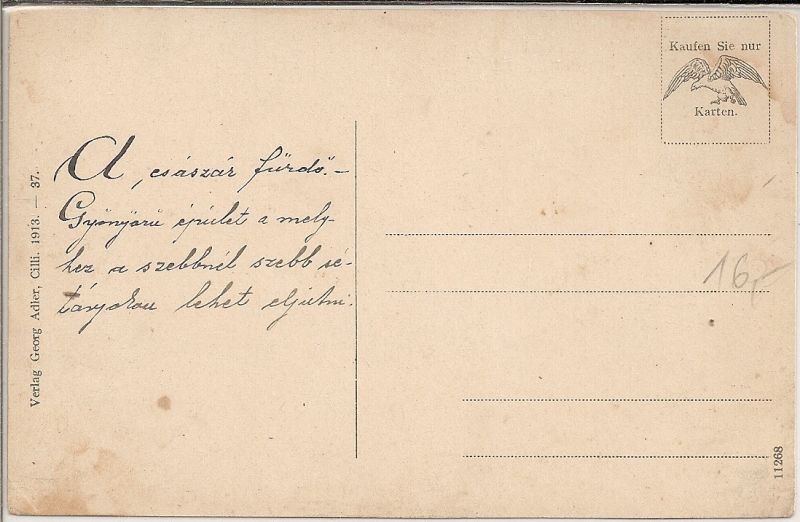 Kaufen Sie nur
Karten.
A császár fürdő.-
Gyönyörű épület a mely-
hez a szebbnél szebb sé-
tányokon lehet eljutni.
16,-
Verlag Georg Adler, Cilli. 1913. — 37.
11268